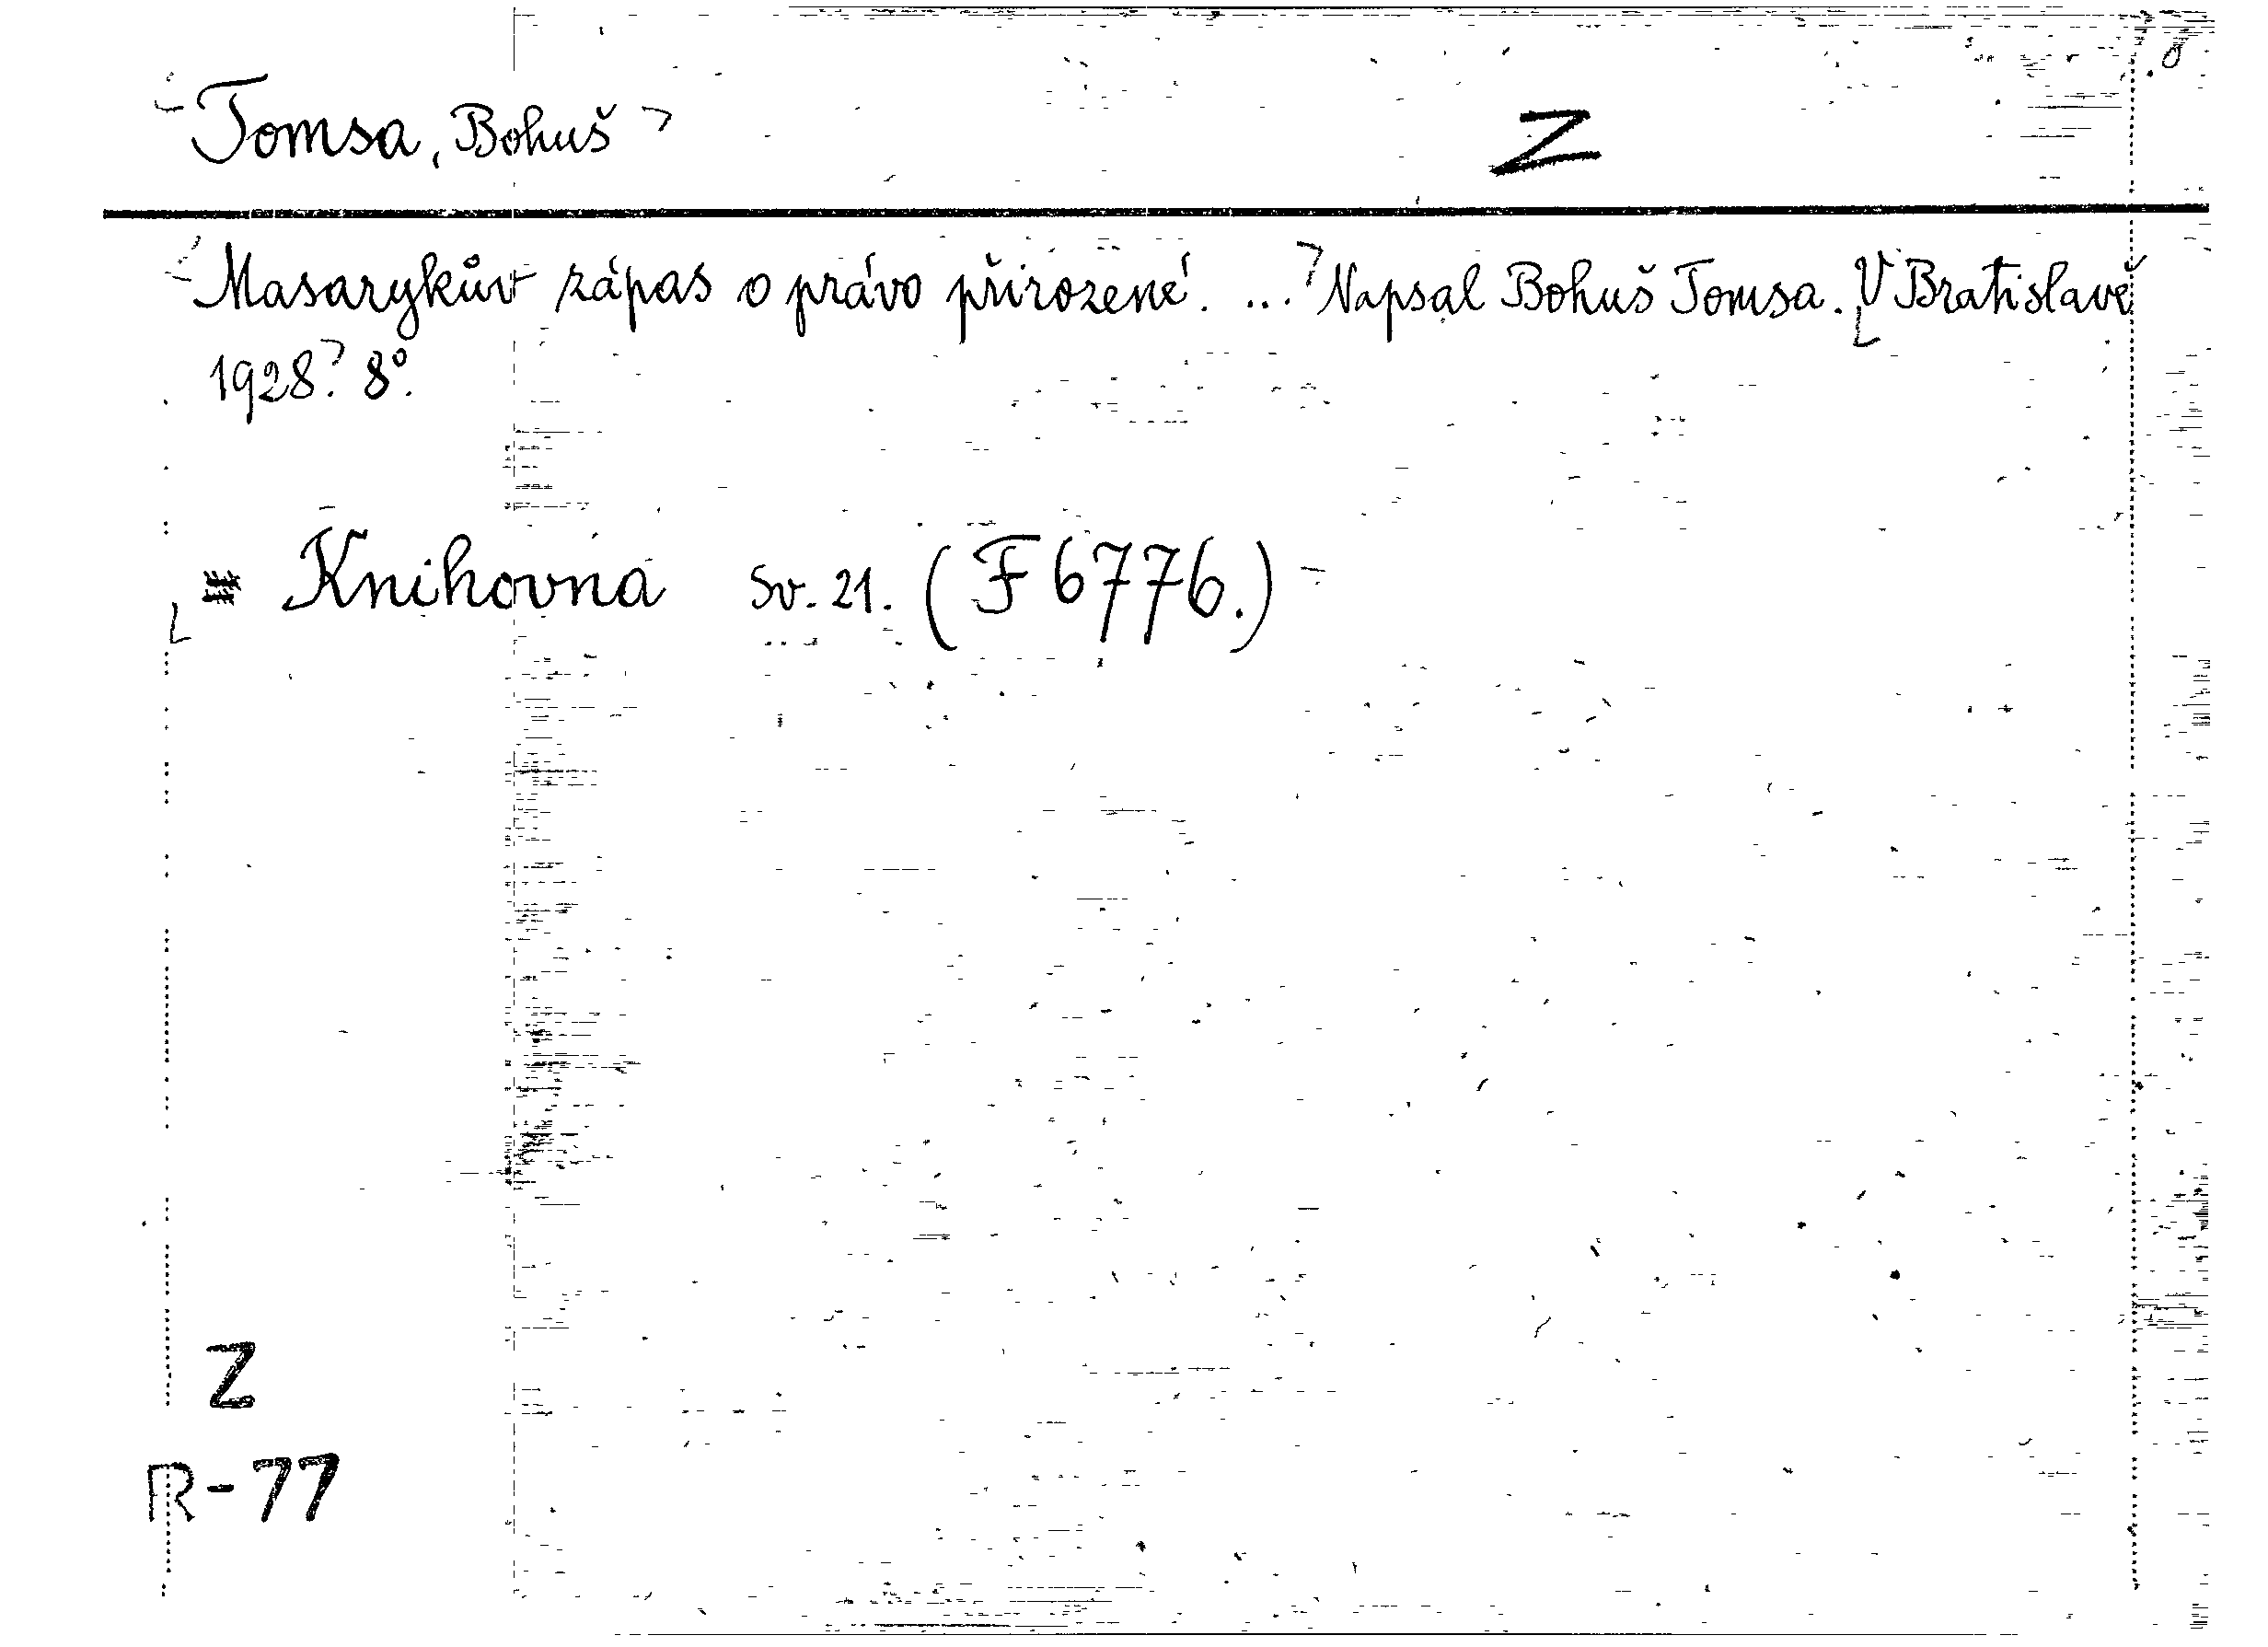 Tomsa, Bohuš Z
Masarykův zápas o právo přirozené. ... Napsal Bohuš Tomsa. V Bratislavě
1928. 8°.
Knihovna Sv. 21. (F 6776.)
Z
R-77